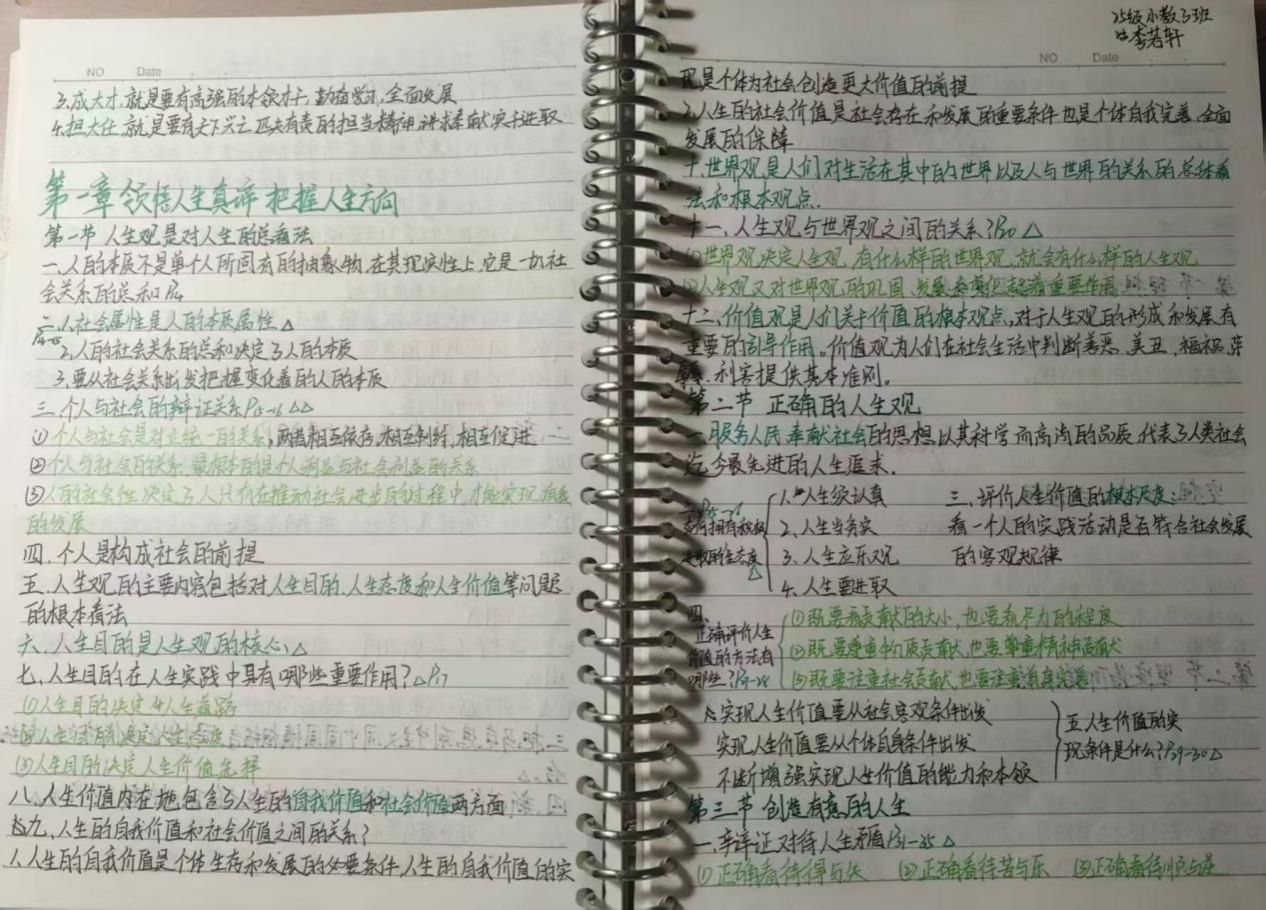 NO Date
3.成大才,就是要有高强的本领才干,勤奋学习,全面发展
4.担大任,就是要有天下兴亡,匹夫有责的担当精神,讲求奉献,实干进取
第一章 领悟人生真谛 把握人生方向
第一节 人生观是对人生的总看法
一.人的本质不是单个人所固有的抽象物,在其现实性上,它是一切社
会关系的总和 P14
二.1.社会属性是人的本质属性 △
P14-15
2.人的社会关系的总和决定了人的本质
3.要从社会关系出发把握变化着的人的本质
三.个人与社会的辩证关系P15-16 △△
①个人与社会是对立统一的关系,两者相互依存,相互制约,相互促进
②个人与社会的关系,最根本的是个人利益与社会利益的关系
③人的社会性决定了人只有在推动社会进步的过程中,才能实现自我
的发展
四.个人是构成社会的前提
五.人生观的主要内容包括对人生目的,人生态度和人生价值等问题
的根本看法
六.人生目的是人生观的核心 △
七.人生目的在人生实践中具有哪些重要作用?△P17
(1)人生目的决定人生道路
(2)人生目的决定人生态度
(3)人生目的决定人生价值选择
八.人生价值内在地包含了人生的自我价值和社会价值两方面
九.人生的自我价值和社会价值之间的关系?
1.人生的自我价值是个体生存和发展的必要条件,人生的自我价值的实
25级小数3班
李若轩
NO Date
现是个体为社会创造更大价值的前提
2.人生的社会价值是社会存在和发展的重要条件也是个体自我完善,全面
发展的保障
十.世界观是人们对生活在其中的世界以及人与世界的关系的总体看
法和根本观点.
十一.人生观与世界观之间的关系?P20 △
(1)世界观决定人生观,有什么样的世界观,就会有什么样的人生观
(2)人生观又对世界观的巩固,发展和变化起着重要作用
十二.价值观是人们关于价值的根本观点,对于人生观的形成和发展有
重要的引导作用。价值观为人们在社会生活中判断善恶,美丑,福祸,荣
辱,利害提供基本准则。
第二节 正确的人生观
一.服务人民,奉献社会的思想以其科学而高尚的品质,代表了人类社会
迄今最先进的人生追求.
1.人生须认真
2.人生当务实
3.人生应乐观
4.人生要进取
三.评价人生价值的根本尺度:
看一个人的实践活动是否符合社会发展
的客观规律
四.
正确评价人生
价值的方法有
哪些?P27-28
(1)既要看贡献的大小,也要看尽力的程度
(2)既要尊重物质贡献,也要尊重精神贡献
(3)既要注重社会贡献,也要注重自身完善
实现人生价值要从社会客观条件出发
实现人生价值要从个体自身条件出发
不断增强实现人生价值的能力和本领
五.人生价值的实
现条件是什么?P29-30 △
第三节 创造有意义的人生
一.辩证对待人生矛盾P31-35 △
(1)正确看待得与失 (2)正确看待苦与乐 (3)正确看待顺与逆